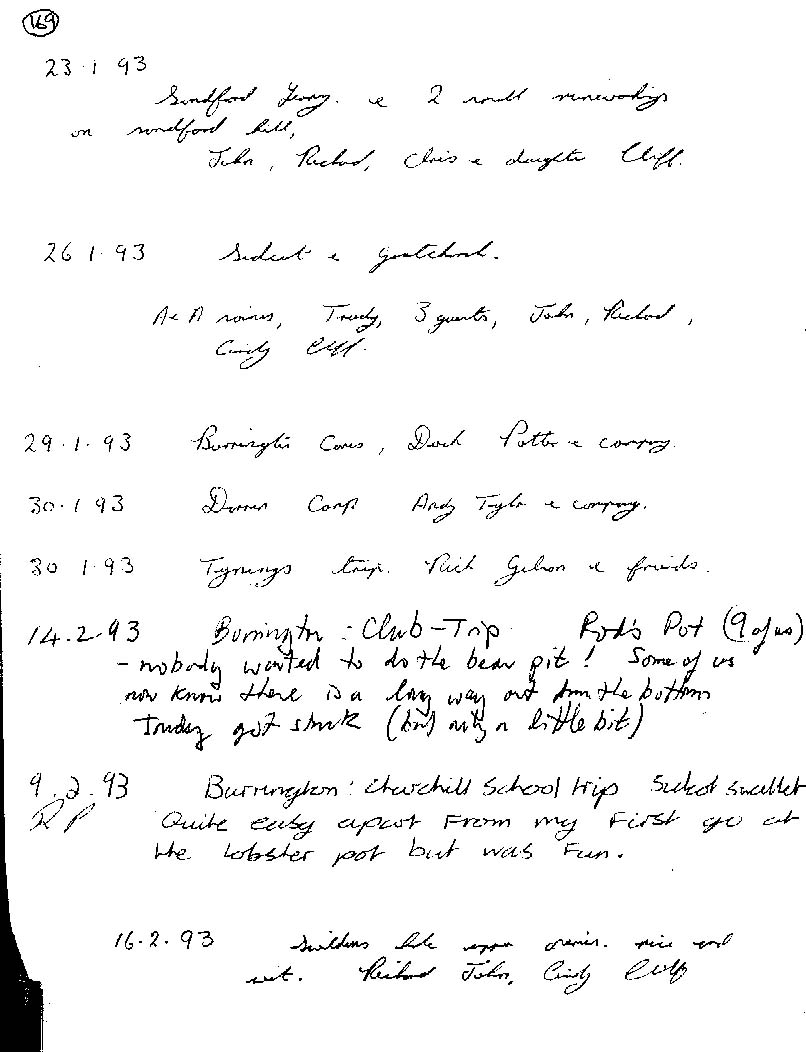 169
23.1 93
Sandford Levvy. e 2 small mineworkings
on sandford hill,
John, Richard, Chris e daughter Cliff.
26 1.93 Sidcot e goatchurch.
A e A Trudy, 3 guests, John, Richard,
Cindy Cliff.
29.1.93 Burrington Caves, Potter e company.
30.1 93 Andy Taylor e company.
30 1.93 Tynings trip. Rich Gelson e friends.
14.2.93 Burrington: Club-Trip Rod's Pot (9 of us)
- nobody wanted to do the bear pit! Some of us
now know there is a long way out from the bottom
Trudy got stuck (but only a little bit)
9.2.93 Burrington: Churchill School trip Sidcot swallet
RP Quite easy apart From my First go at
the lobster pot but was Fun.
16.2.93 Swildons hole upper nice and
wet. Richard John, Cindy Cliff